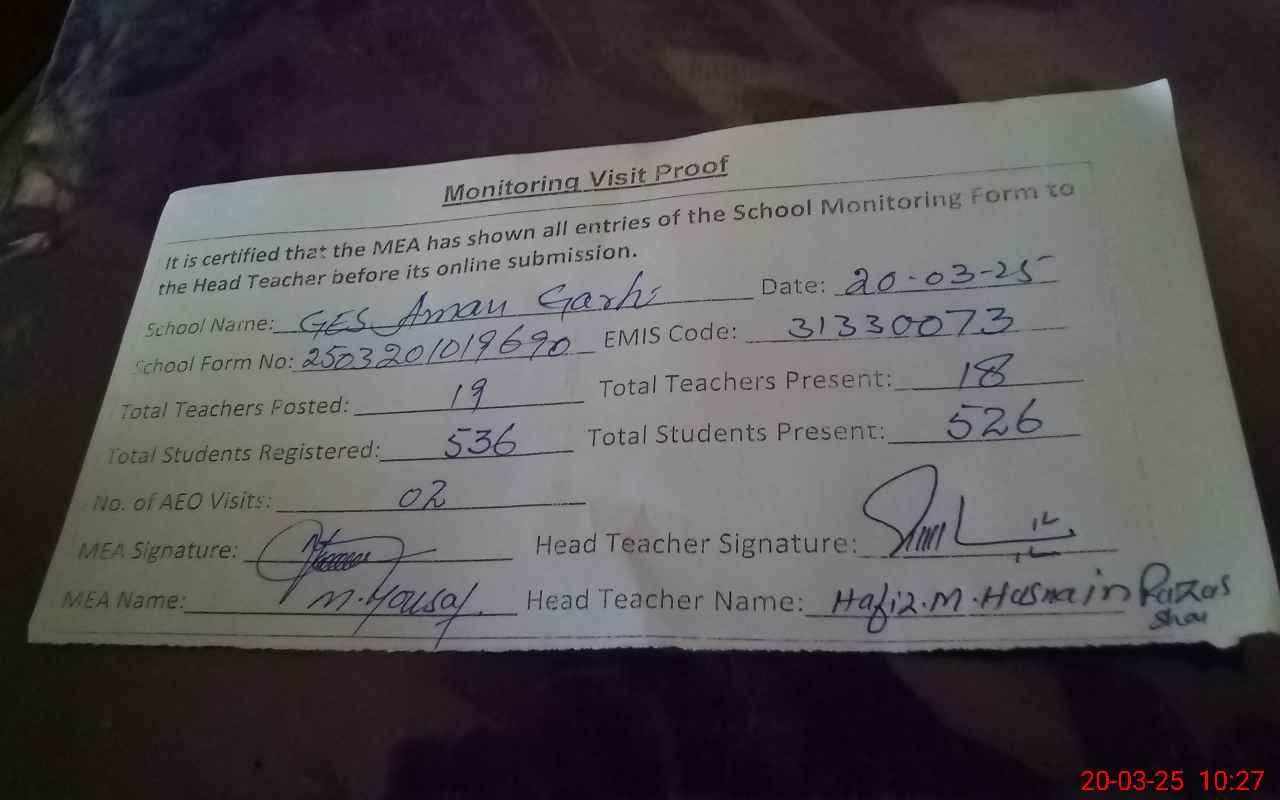 Monitoring Visit Proof
It is certified that the MEA has shown all entries of the School Monitoring Form to
the Head Teacher before its online submission.
School Name: GES Aman Garhi Date: 20-03-25
School Form No: 2503201019690 EMIS Code: 31330073
Total Teachers Posted: 19 Total Teachers Present: 18
Total Students Registered: 536 Total Students Present: 526
No. of AEO Visits: 02
MEA Signature: Head Teacher Signature:
MEA Name: M. Yousaf Head Teacher Name: Hafiz. M. Hasnain
20-03-25 10:27